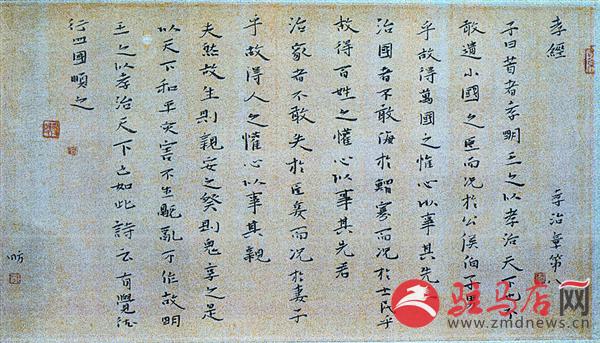 孝經 孝治章第八
子曰昔者孝明王之以孝治天下也不
敢遺小國之臣而況於公侯伯子男
乎故得萬國之懽心以事其先
治國者不敢侮於鰥寡而況於士民乎
故得百姓之懽心以事其先君
治家者不敢失於臣妾而況於妻子
乎故得人之懽心以事其親
夫然故生則親安之祭則鬼享之是
以天下和平災害不生亂不作故明
王之以孝治天下也如此詩云有覺德
行四國順之
驻马店网
www.zmdnews.cn